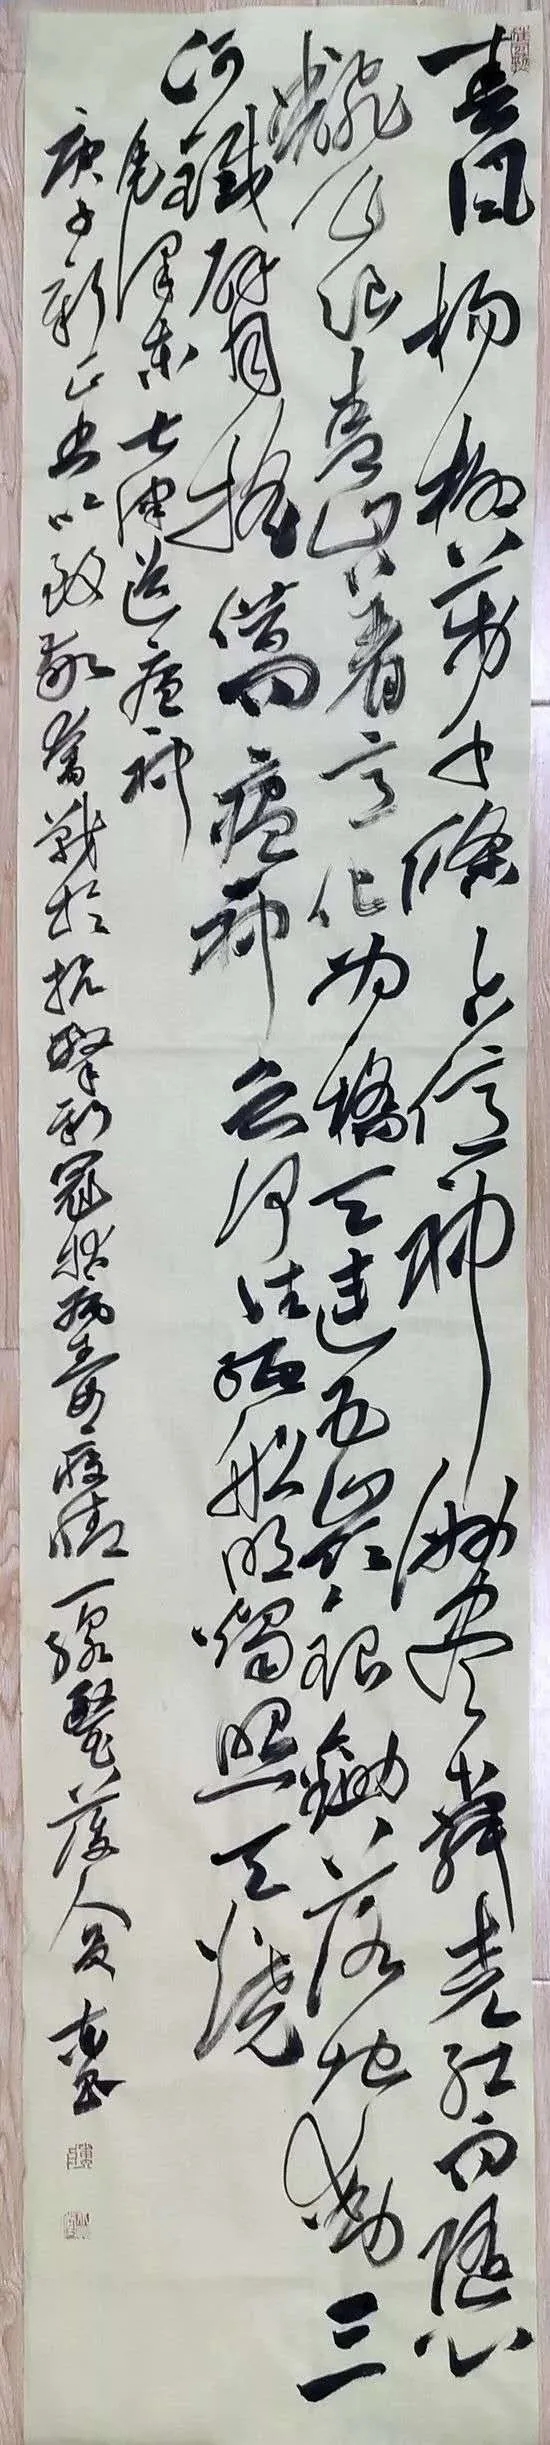 春風楊柳萬千條六億神州盡舜堯紅雨隨心
翻作浪青山著意化為橋天連五嶺銀鋤落地動三
河鐵臂搖借問瘟神欲何往紙船明燭照天燒
毛澤東七律送瘟神
庚子新正書以致敬奮戰於抗擊新冠狀病毒疫情一線醫護人員